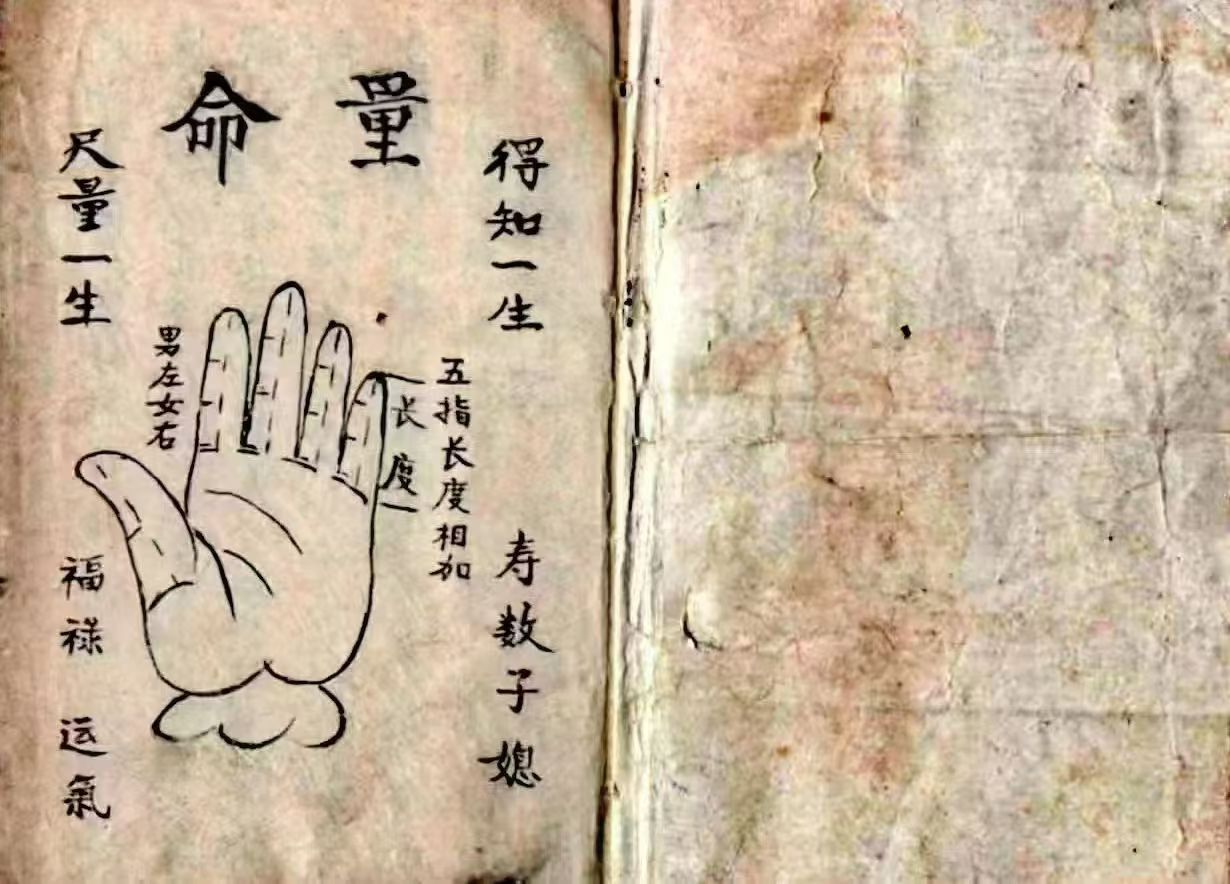 量命
得知一生
寿数子媳
五指长度相加
长度
男左女右
尺量一生
福禄运氣